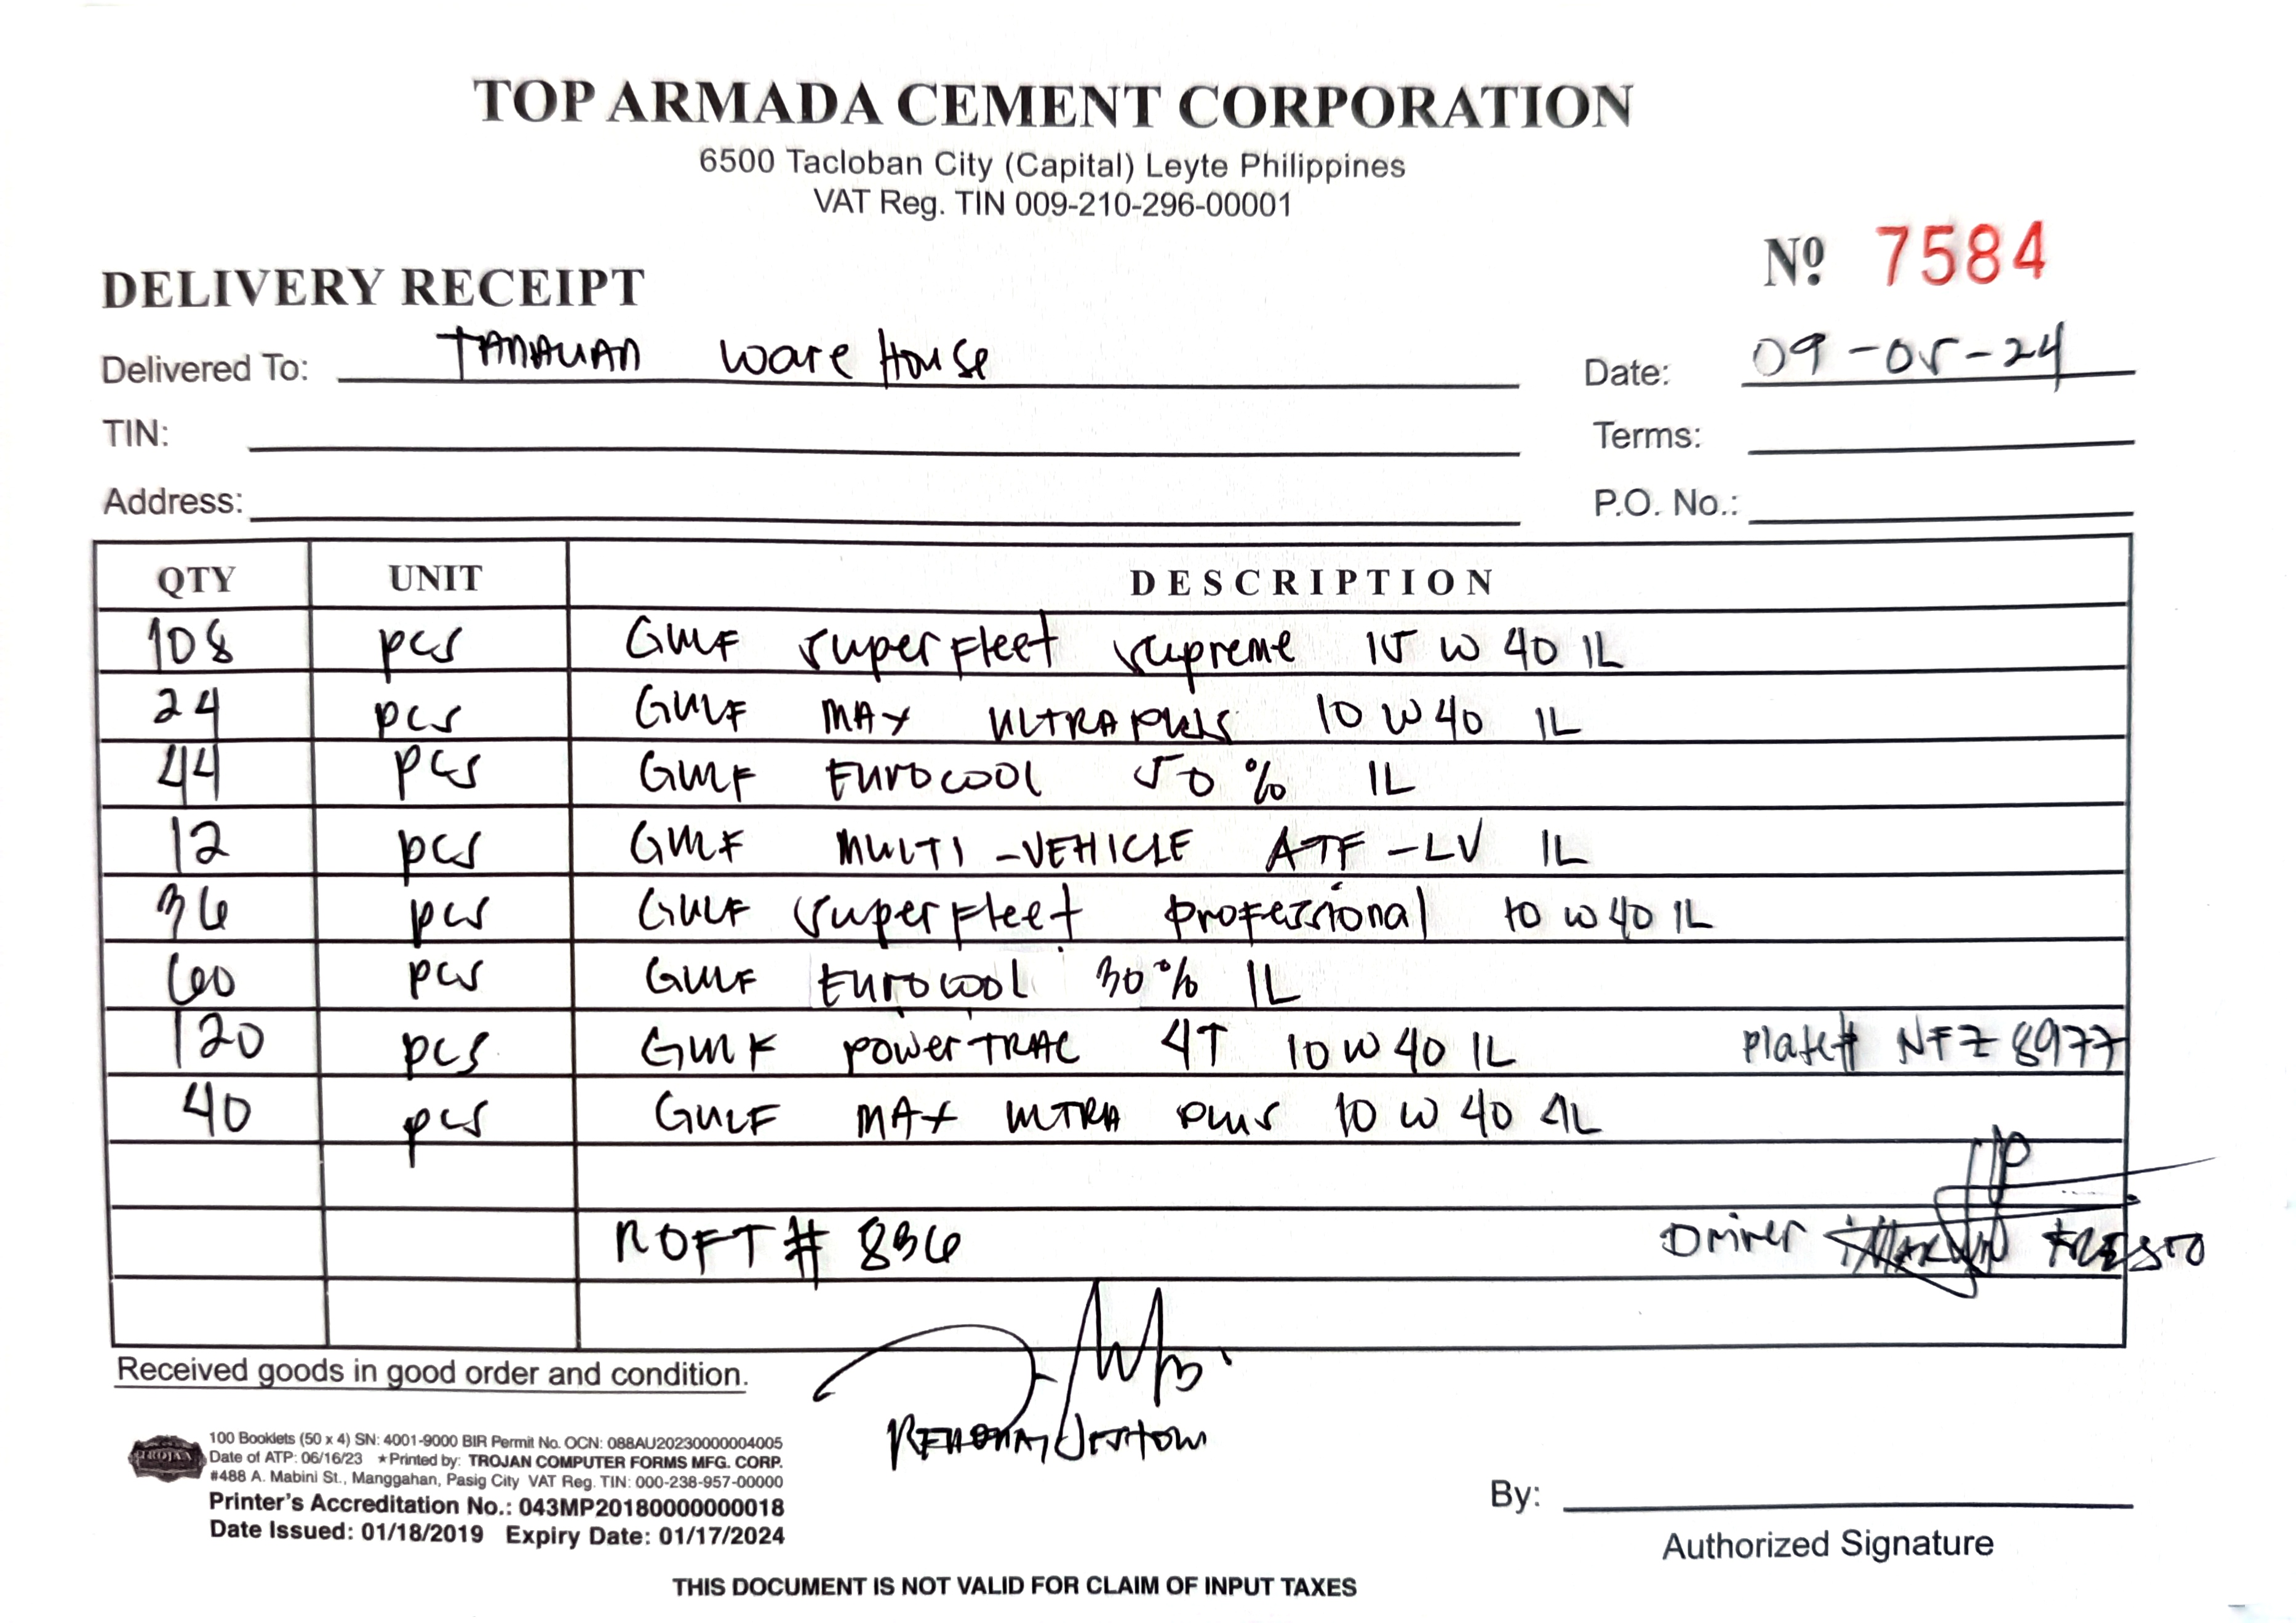 TOP ARMADA CEMENT CORPORATION
6500 Tacloban City (Capital) Leyte Philippines
VAT Reg. TIN 009-210-296-00001
Nº 7584
DELIVERY RECEIPT
Delivered To: TANAUAN Ware House Date: 09-05-24
TIN: Terms:
Address: P.O. No.:
QTY UNIT DESCRIPTION
108 pcs GULF superfleet supreme 15 W 40 1L
24 pcs GULF MAX ULTRA PLUS 10 W 40 1L
44 pcs GULF Eurocool 50 % 1L
12 pcs GULF MULTI-VEHICLE ATF-LV 1L
36 pcs GULF superfleet professional 10 W 40 1L
60 pcs GULF Eurocool 30% 1L
120 pcs GULF powerTRAC 4T 10 W 40 1L plate# NFZ 8977
40 pcs GULF MAX ULTRA PLUS 10 W 40 4L
ROFT # 836 Driver
Received goods in good order and condition.
100 Booklets (50 x 4) SN: 4001-9000 BIR Permit No. OCN: 088AU20230000004005
Date of ATP: 06/16/23 ★Printed by: TROJAN COMPUTER FORMS MFG. CORP.
#488 A. Mabini St., Manggahan, Pasig City VAT Reg. TIN: 000-238-957-00000
TROJAN
Printer's Accreditation No.: 043MP20180000000018
Date Issued: 01/18/2019 Expiry Date: 01/17/2024
By:
Authorized Signature
THIS DOCUMENT IS NOT VALID FOR CLAIM OF INPUT TAXES